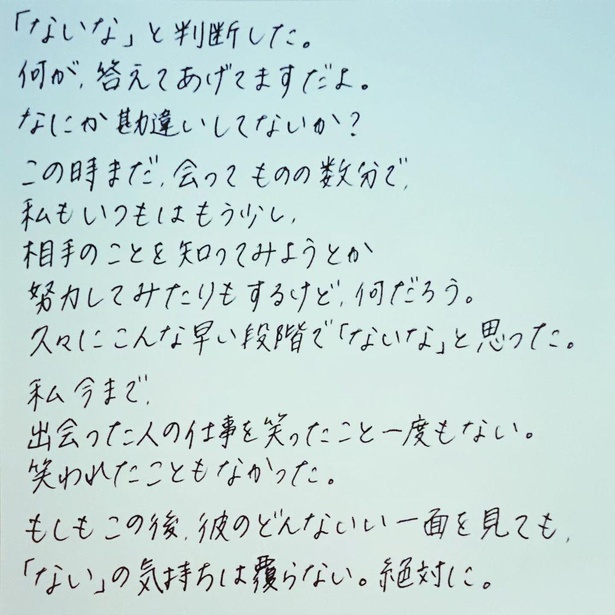 「ないな」と判断した。
何が、答えてあげてますだよ。
なにか勘違いしてないか？
この時まだ、会ってものの数分で、
私もいつもはもう少し、
相手のことを知ってみようとか
努力してみたりもするけど、何だろう。
久々にこんな早い段階で「ないな」と思った。
私今まで、
出会った人の仕事を笑ったこと一度もない。
笑われたこともなかった。
もしもこの後、彼のどんないい一面を見ても、
「ない」の気持ちは覆らない。絶対に。